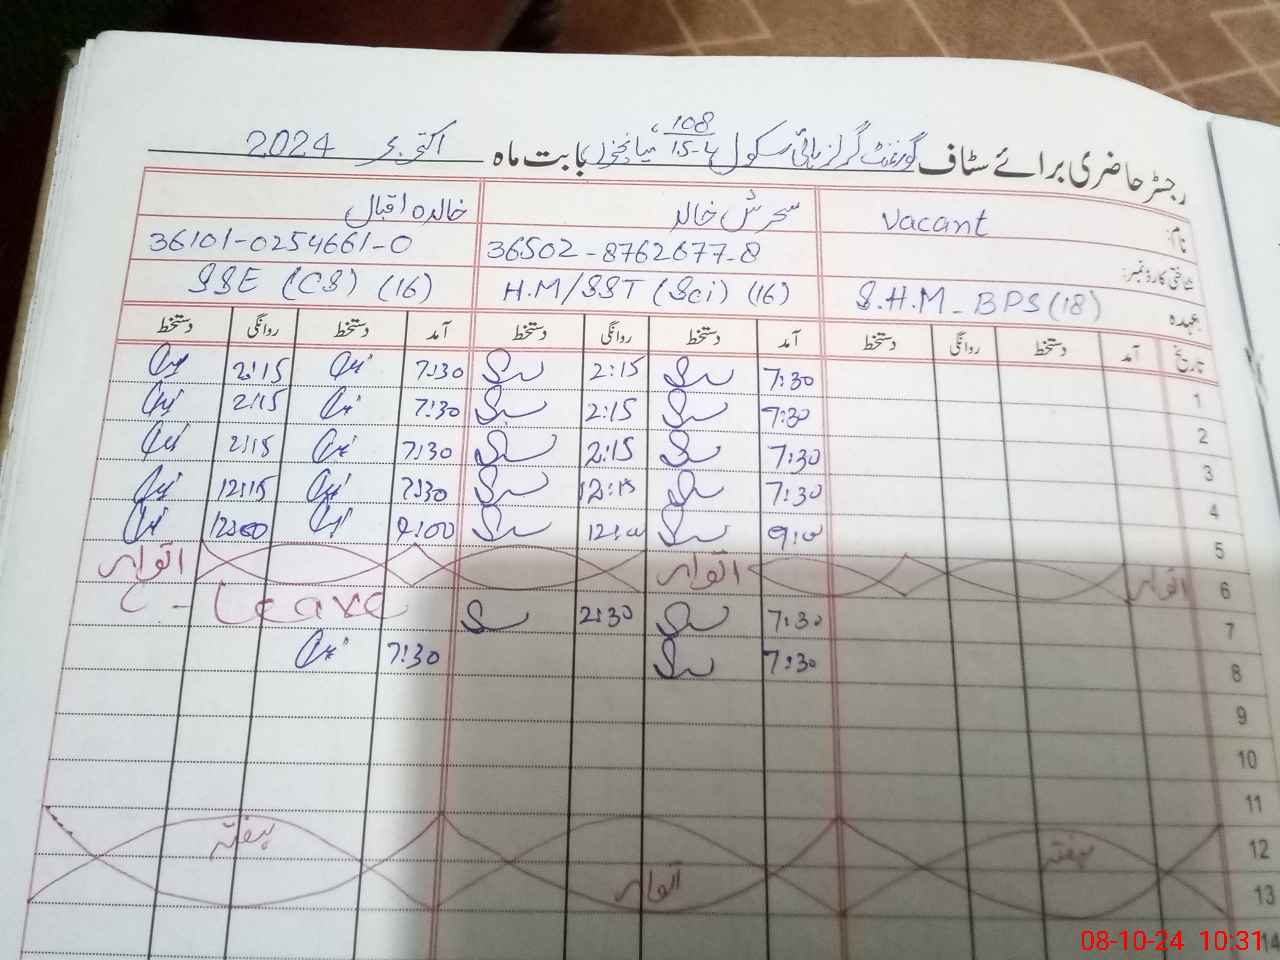 رجسٹر حاضری برائے سٹاف گورنمنٹ گرلز ہائی سکول 108/15-L میانچنوں بابت ماہ اکتوبر 2024
نام: Vacant سحرش خالد خالدہ اقبال
شناختی کارڈ نمبر: 36502-8762677-8 36101-0254661-0
عہدہ: S.H.M - BPS (18) H.M/SST (Sci) (16) SSE (CS) (16)
تاریخ آمد دستخط روانگی دستخط آمد دستخط روانگی دستخط آمد دستخط روانگی دستخط
1 7:30 2:15 7:30 2:15
2 7:30 2:15 7:30 2:15
3 7:30 2:15 7:30 2:15
4 7:30 12:15 7:30 12:15
5 9:00 12:00 9:00 12:00
6 اتوار اتوار اتوار
7 7:30 2:30 C - Leave
8 7:30 7:30
9
10
11
12 ہفتہ ہفتہ
13 اتوار
14
08-10-24 10:31